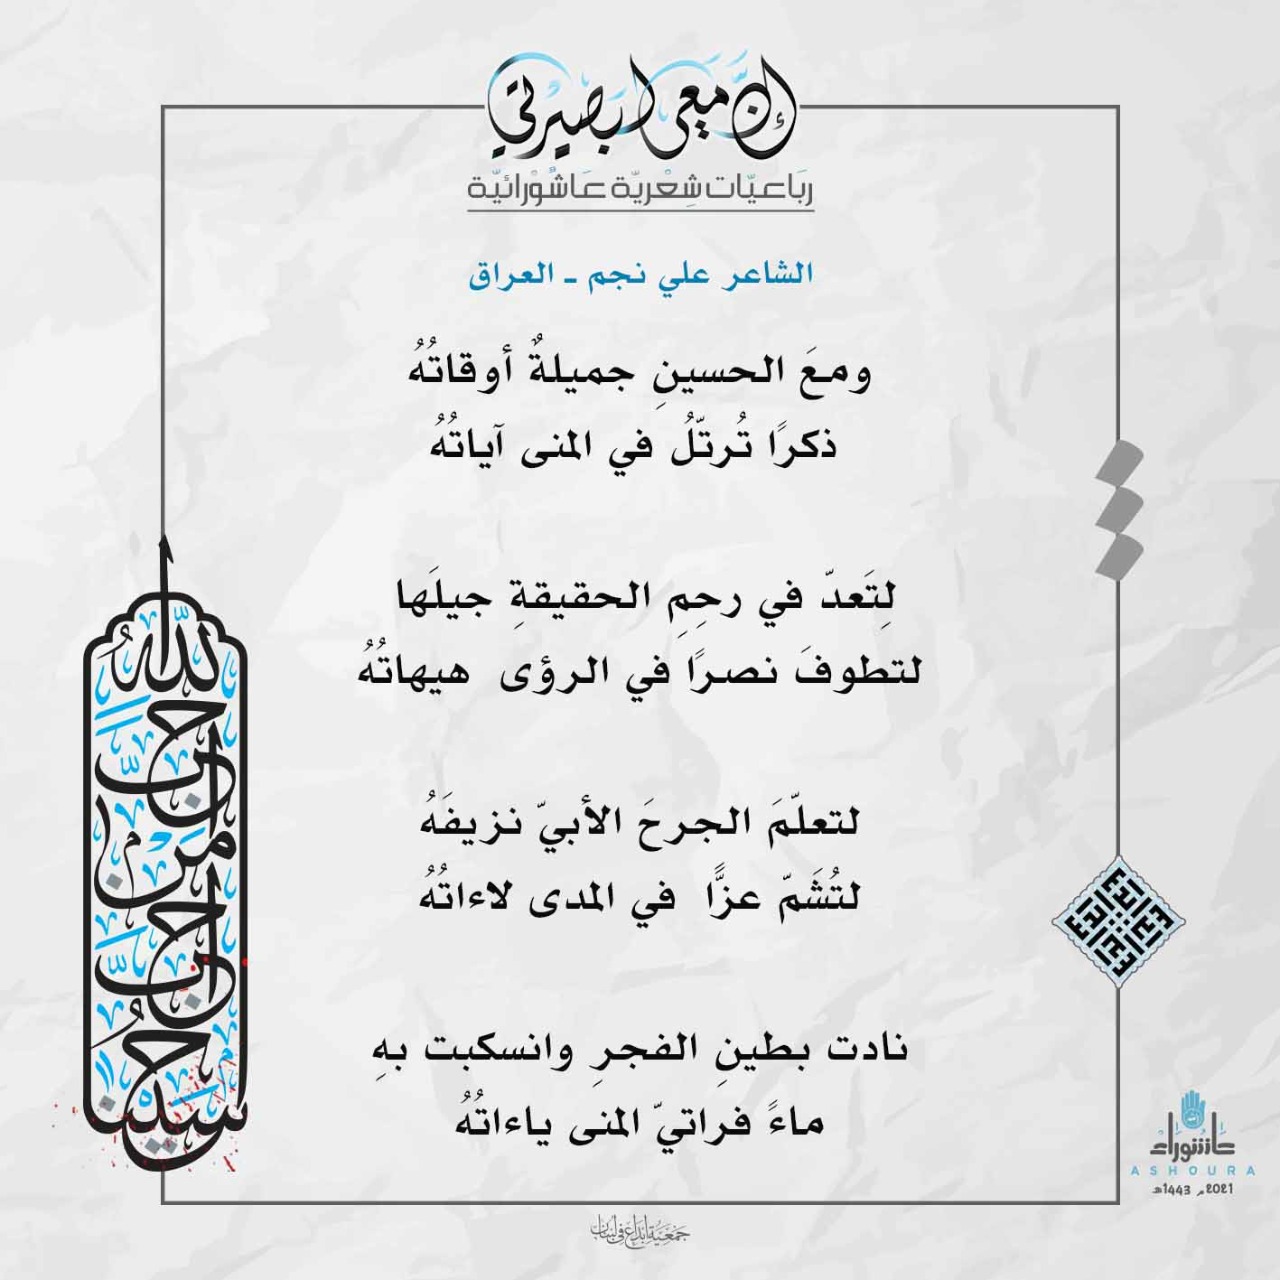 إنّ معي لبصيرتي
رباعيّات شِعْريّة عَاشُوْرائيّة
الشاعر علي نجم ـ العراق
ومعَ الحسينِ جميلةٌ أوقاتُهُ
ذكرًا تُرتّلُ في المنى آياتُهُ
لِتَعدّ في رحِمِ الحقيقةِ جيلَها
لتطوفَ نصرًا في الرؤى هيهاتُهُ
لتعلّمَ الجرحَ الأبيّ نزيفَهُ
لتُشَمّ عزًّا في المدى لاءاتُهُ
نادت بطينِ الفجرِ وانسكبت بهِ
ماءً فراتيّ المنى ياءاتُهُ
أحب الله من أحب حسينا
عاشوراء
ASHOURA
2021م 1443هـ
جمعية إبداع في لبنان